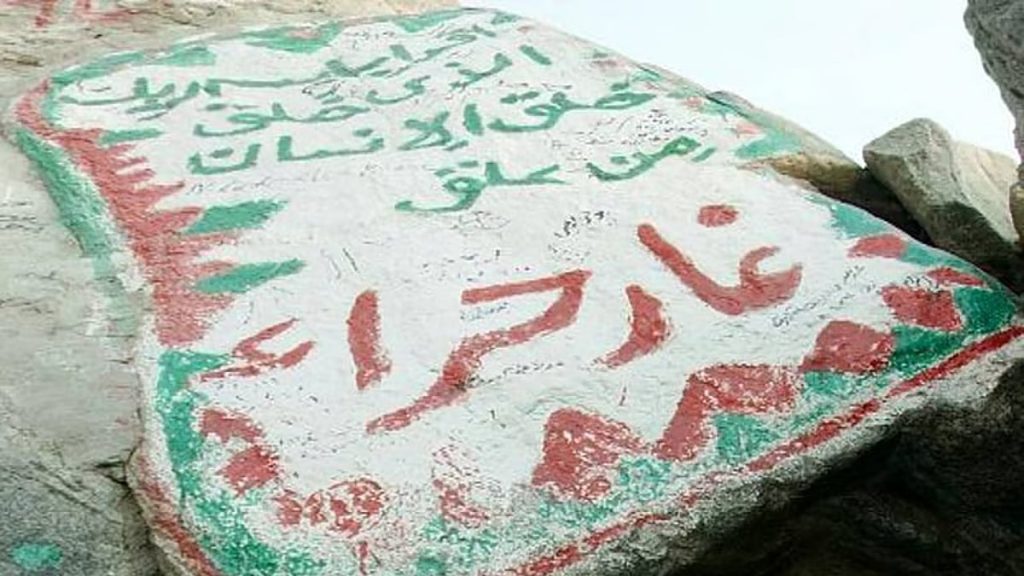 اقرا باسم ربك
الذي خلق
خلق الإنسان
من علق
غار حراء